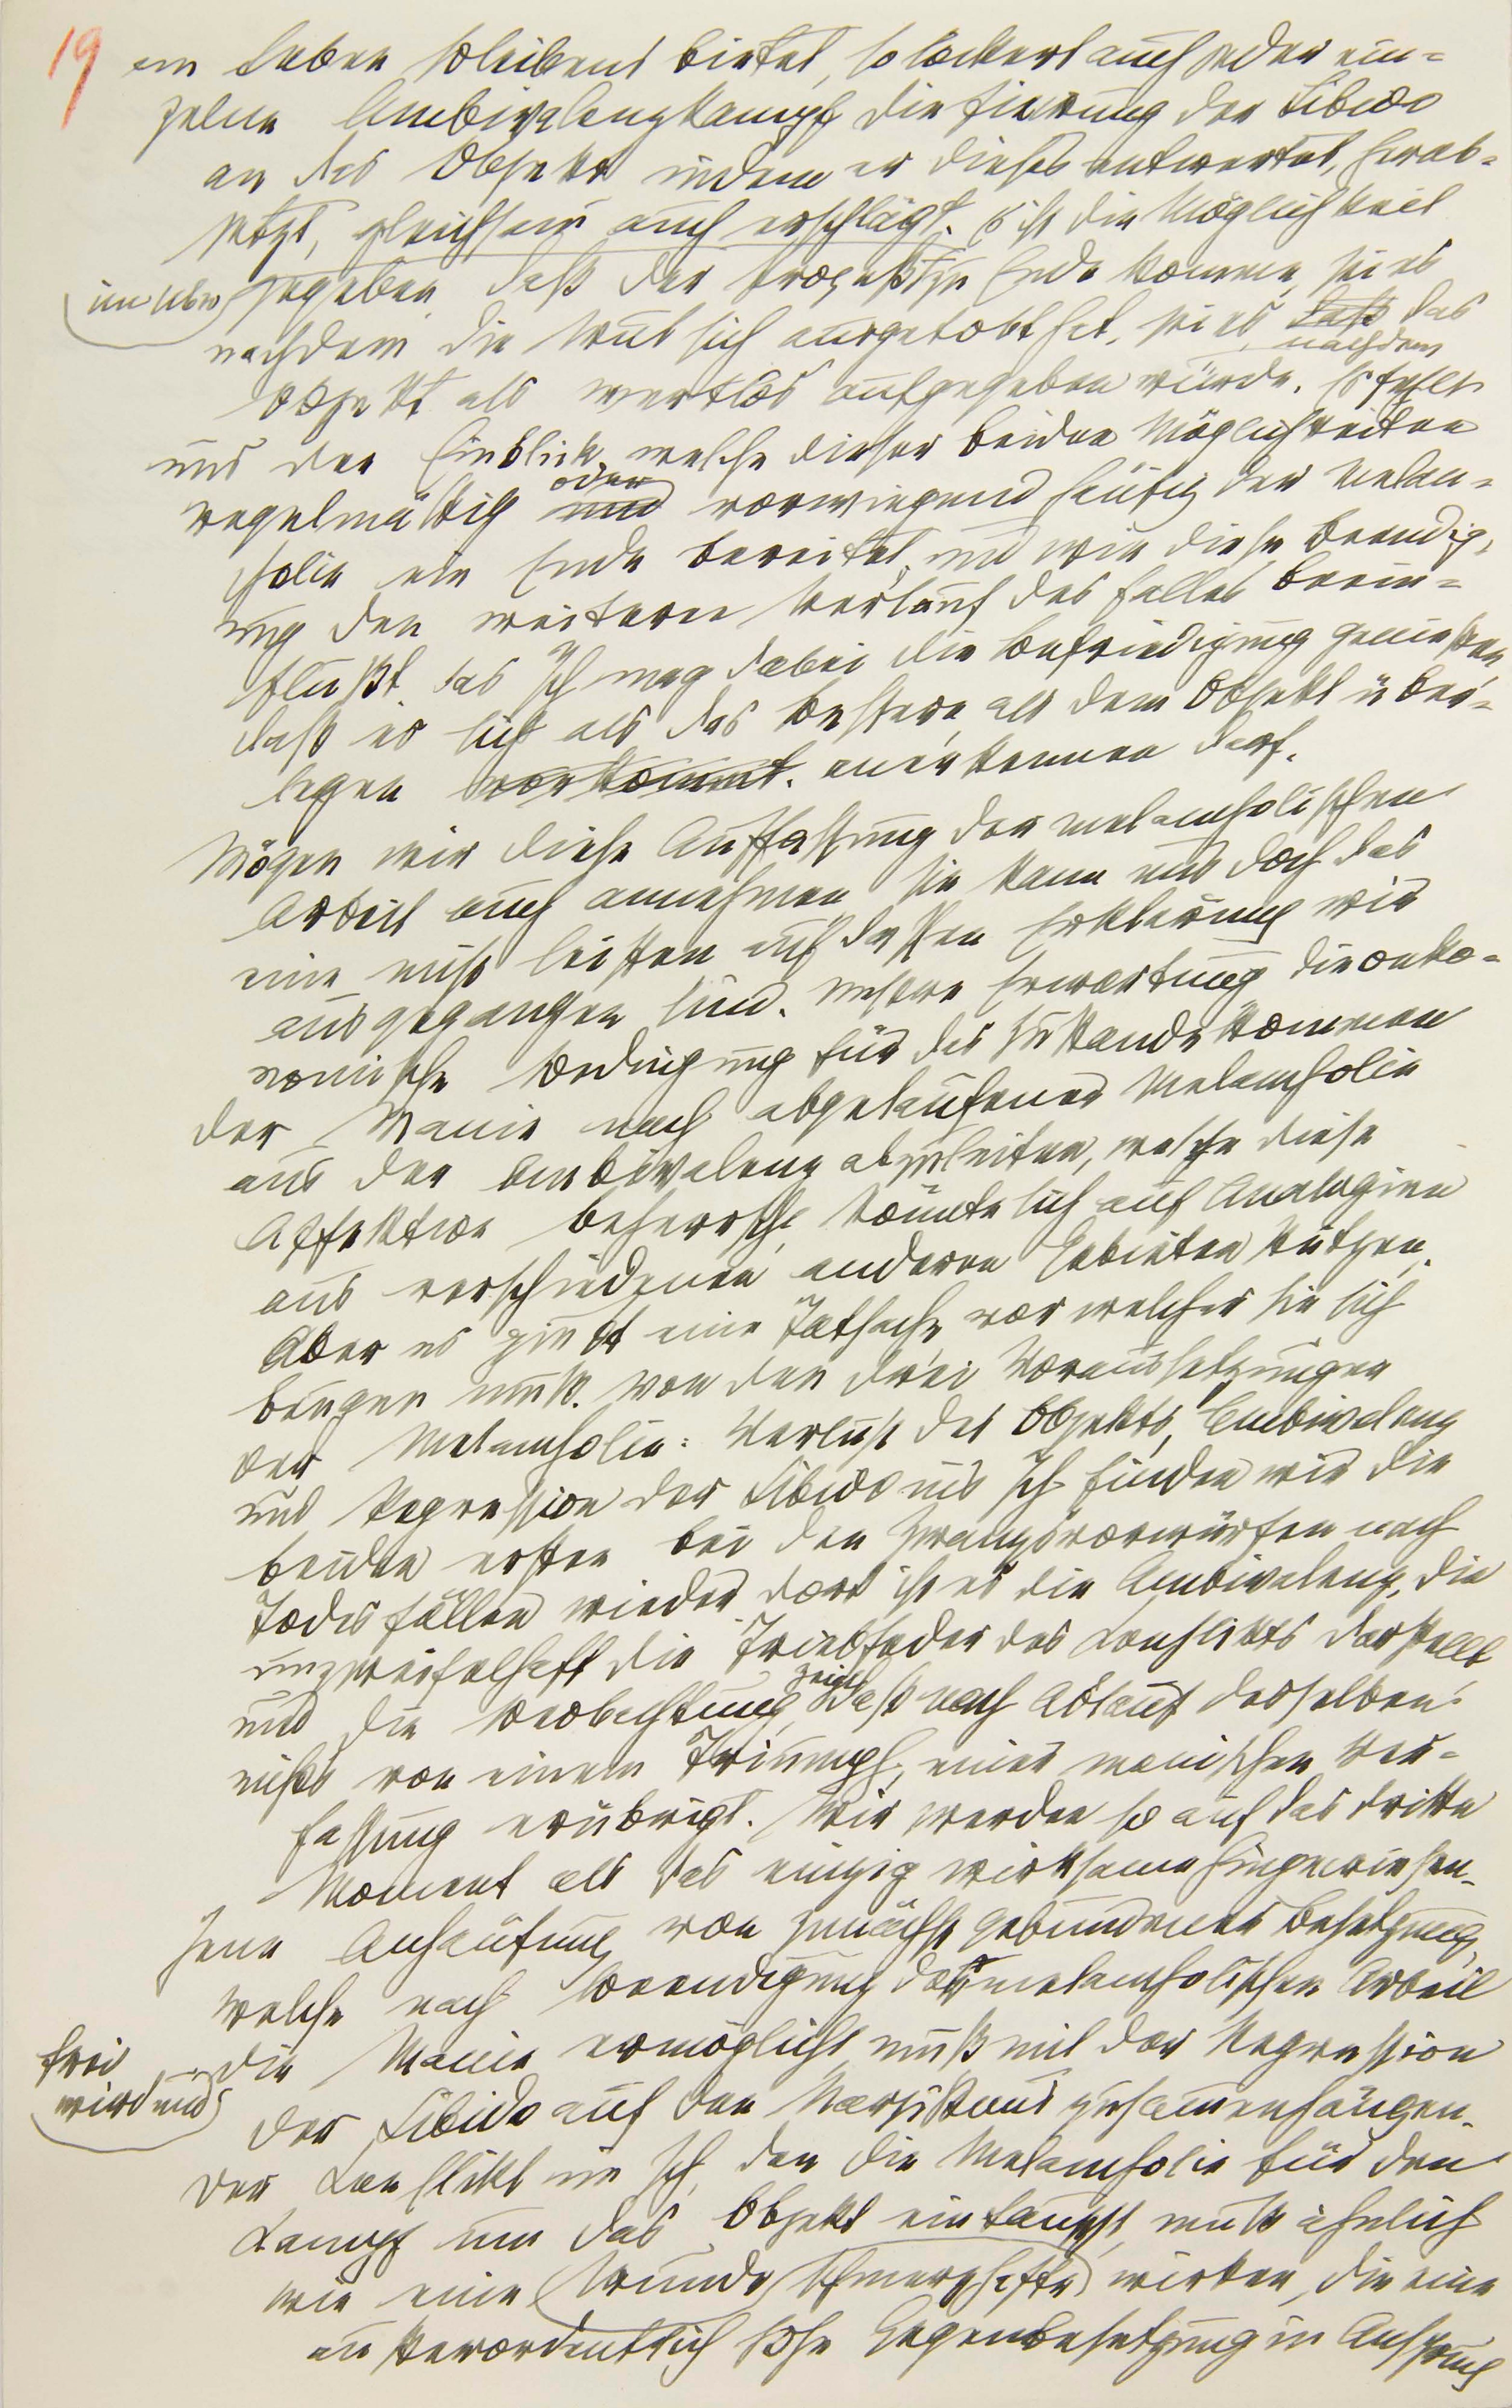 19
am Leben bleibens bietet, so lockert auch jeder ein=
zelne Ambivalenzkampf die Fixirung der Libido
an das Objekt indem er dieses entwertet, herab=
setzt, gleichsam auch erschlägt. Es ist die Möglichkeit
im Ubw gegeben, daß der Prozeß zu Ende komme, sei es
nachdem die Wut sich ausgetobt hat, sei es daß das
nachdem
Objekt als wertlos aufgegeben würde. Es fehlt
uns der Einblick, welche dieser beiden Möglichkeiten
oder
regelmäßig und vorwiegend häufig der Melan=
cholie ein Ende bereitet und wie diese Beendig=
ung den weiteren Verlauf des Falles beein=
flußt. Das Ich mag dabei die Befriedigung genießen,
daß es sich als das Bessere, als dem Objekt über=
legen vorkommt. anerkennen darf.
Mögen wir diese Auffassung der melancholischen
Arbeit auch annehmen, sie kann uns doch das
eine nicht leisten auf dessen Erklärung wir
ausgegangen sind. Unsere Erwartung die öko=
nomische Bedingung für das Zustandekommen
der Manie nach abgelaufener Melancholie
aus der Ambivalenz abzuleiten, welche diese
Affektion beherrscht, könnte sich auf Analogien
aus verschiedenen anderen Gebieten stützen.
Aber es giebt eine Tatsache, vor welcher sie sich
beugen muß. Von den drei Voraussetzungen
der Melancholie: Verlust des Objekts, Ambivalenz
und Regression der Libido ins Ich finden wir die
beiden ersten bei den Zwangsvorwürfen nach
Todesfällen wieder. Dort ist es die Ambivalenz, die
unzweifelhaft die Triebfeder des Konflikts darstellt
zeigt
und die Beobachtung, daß nach Ablauf desselben
nichts von einem Triumph, einer manischen Ver=
fassung erübrigt. Wir werden so auf das dritte
Moment als das einzig wirksame hingewiesen.
Jene Anhäufung von zunächst gebundener Besetzung,
welche nach Beendigung der melancholischen Arbeit
frei
wird und
die Manie ermöglicht, muß mit der Regression
der Libido auf den Narzißmus zusammenhängen.
Der Konflikt im Ich, den die Melancholie für den
Kampf um das Objekt eintauscht, muß ähnlich
wie eine Wunde schmerzhafte wirken, die eine
außerordentlich hohe Gegenbesetzung in Anspruch